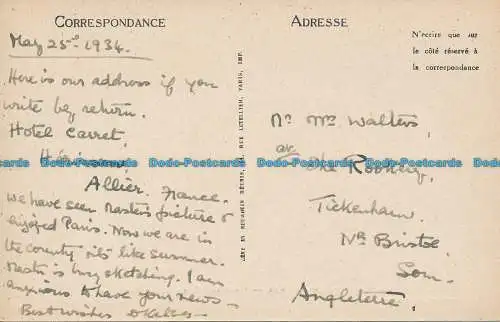 CORRESPONDANCE
May 25th 1934.
Here is our address if you
write by return.
Hotel Carret,
Allier. France.
we have seen picture &
enjoyed Paris. Now we are in
the country it is like summer.
is busy sketching. I am
anxious to have your news —
Best wishes
ADRESSE
N'écrire que sur
le côté réservé à
la correspondance
Mr Mrs Walters,
The Rookery,
Tickenham,
Nr Bristol
Som.
Angleterre.
Dodo-Postcards Dodo-Postcards Dodo-Postcards Dodo-Postcards